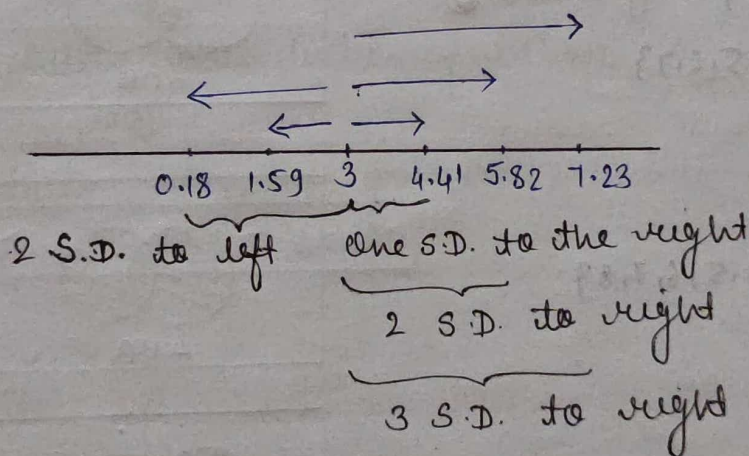 0.18 1.59 3 4.41 5.82 7.23
2 S.D. to left one S.D. to the right
2 S.D. to right
3 S.D. to right